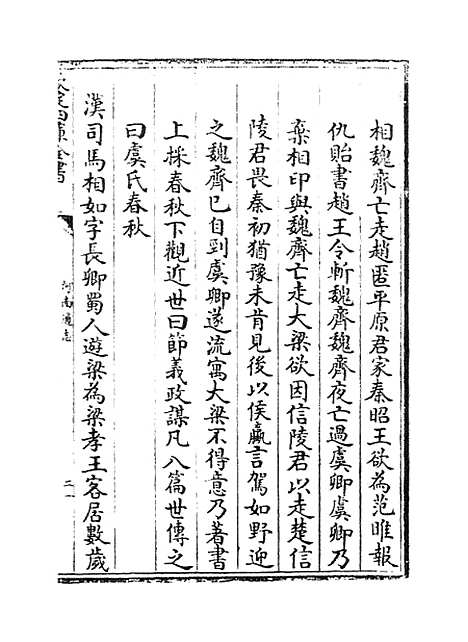 相魏齊亡走趙匿平原君家秦昭王欲為范睢報
仇貽書趙王令斬魏齊魏齊夜亡過虞卿虞卿乃
棄相印與魏齊亡走大梁欲因信陵君以走楚信
陵君畏秦初猶豫未肯見後以侯嬴言駕如野迎
之魏齊已自剄虞卿遂流寓大梁不得意乃著書
上採春秋下觀近世曰節義政謀凡八篇世傳之
曰虞氏春秋
漢司馬相如字長卿蜀人遊梁為梁孝王客居數歲
河南通志